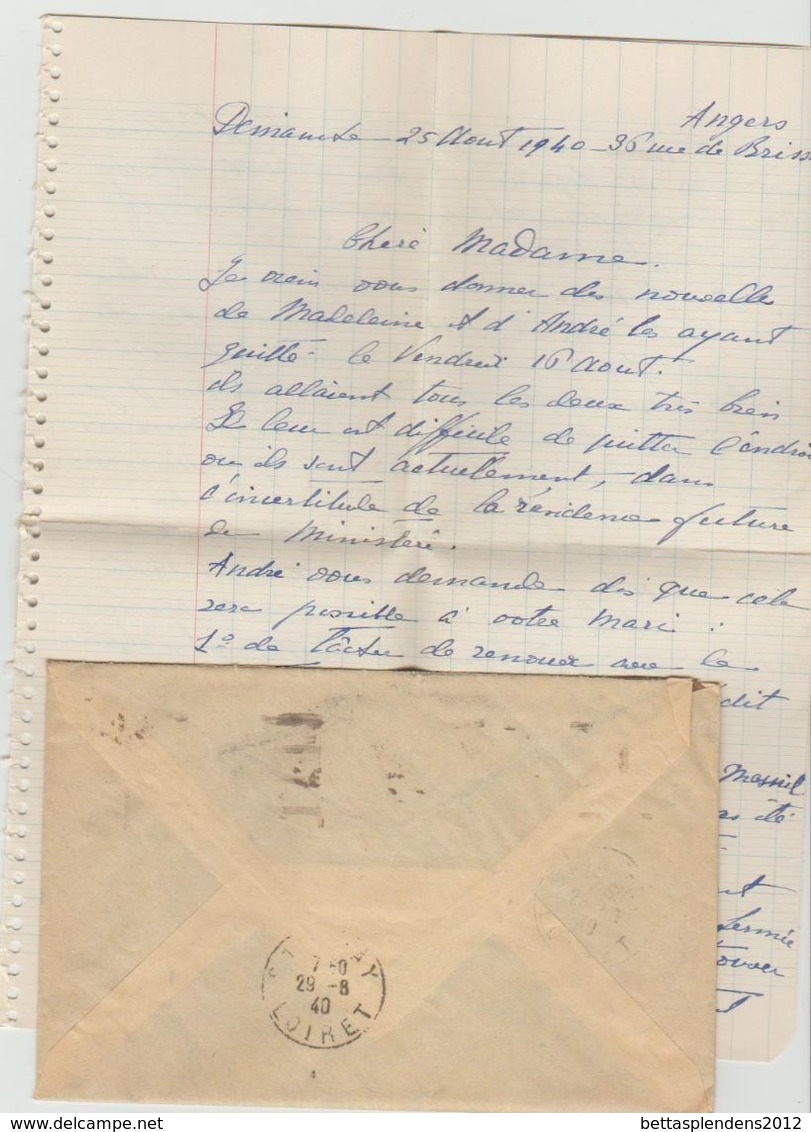 Angers
Dimanche 25 Aout 1940 - 36 rue de Briss
Chère Madame.
Je viens vous donner des nouvelles
de Madeleine et d'André les ayant
quitté le Vendredi 16 Aout.
ils allaient tous les deux très bien
Il leur est difficile de quitter l'endroi
ou ils sont actuellement, dans
l'incertitude de la résidence future
du Ministère.
André vous demande dès que cela
sera possible à votre Mari :
1º de tâcher de renouer avec le
dit
Mesnil
été
fermée
7 0
29 -8
40
LOIRET
bettasplendens2012